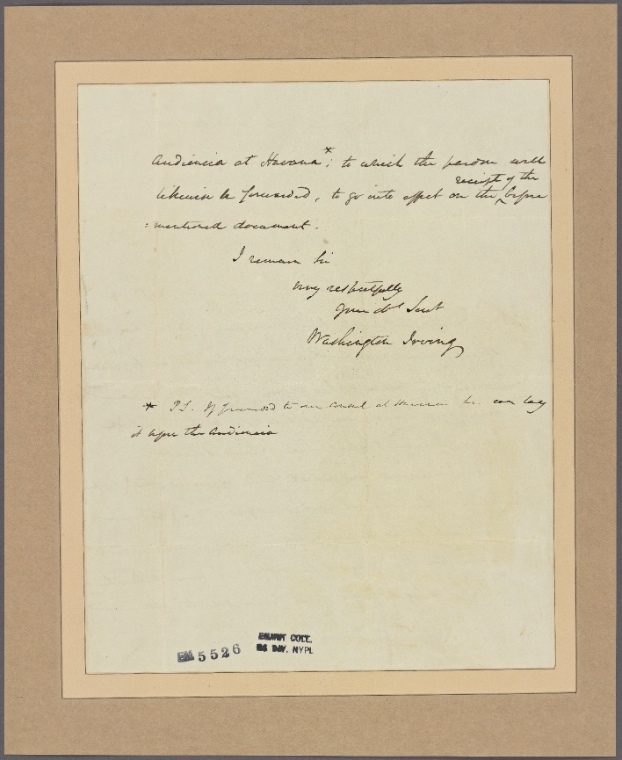 Audiencia at Havana *; to which the pardon will
receipt of the
likewise be forwarded, to go into effect on the ^ before
: mentioned document.
I remain Sir
very respectfully
Your obt Servt
Washington Irving
* P.S. If forwarded to our Consul at Havana he can lay
it before the Audiencia
EM 5526
EMMET COLL.
MS DIV. NYPL